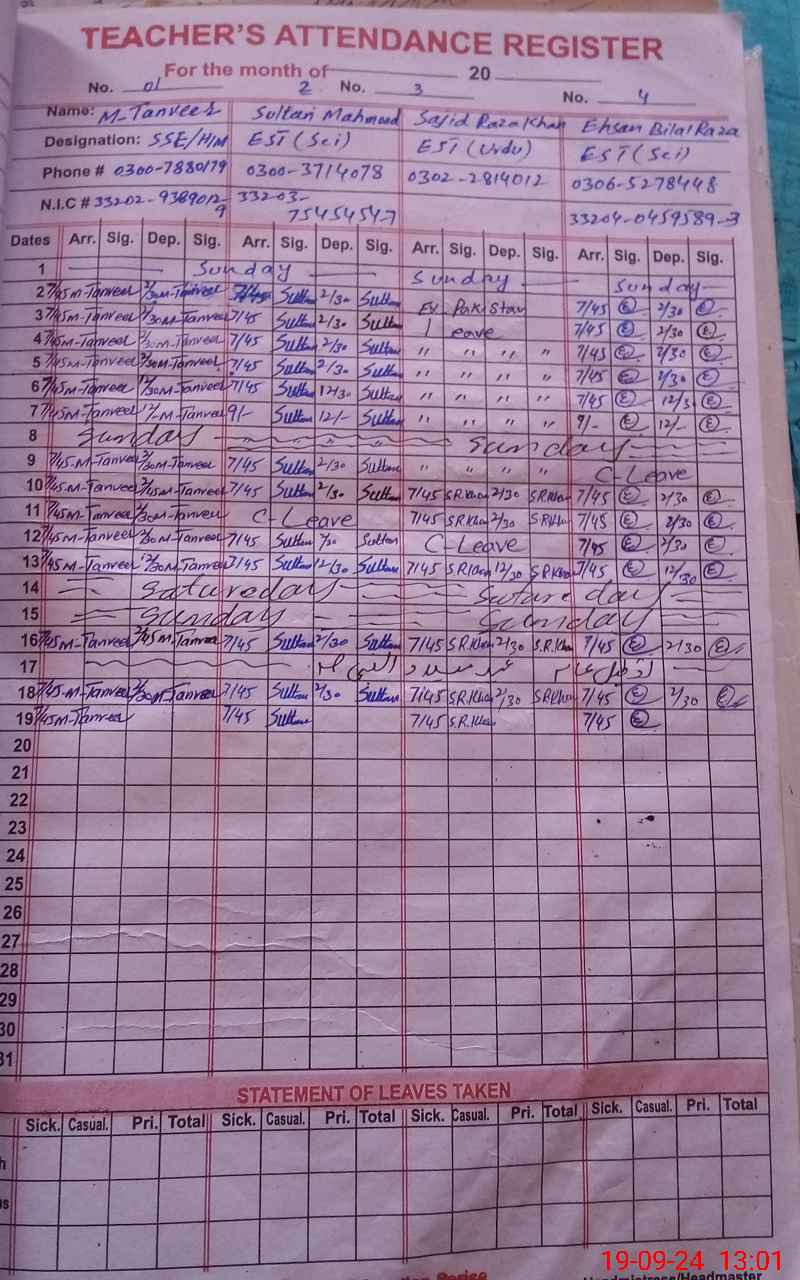 TEACHER'S ATTENDANCE REGISTER
For the month of 20
No. 01 2 No. 3 No. 4
Name: M-Tanveer Sultan Mahmood Sajid Raza Khan Ehsan Bilal Raza
Designation: SSE/HM EST (Sci) EST (Urdu) EST (Sci)
Phone # 0300-7880179 0300-3714078 0302-2814012 0306-5278448
N.I.C # 33202-9389012-9 33203-7545454-7 33204-0459589-3
Dates Arr. Sig. Dep. Sig. Arr. Sig. Dep. Sig. Arr. Sig. Dep. Sig. Arr. Sig. Dep. Sig.
1 Sunday Sunday Sunday
2 7/45 M-Tanveer 2/30 M-Tanveer 7/45 Sultan 2/30 Sultan Ex Pakistan 7/45 E 2/30 E
3 7/45 M-Tanveer 2/30 M-Tanveer 7/45 Sultan 2/30 Sultan Leave 7/45 E 2/30 E
4 7/45 M-Tanveer 2/30 M-Tanveer 7/45 Sultan 2/30 Sultan " " " " 7/45 E 2/30 E
5 7/45 M-Tanveer 2/30 M-Tanveer 7/45 Sultan 2/30 Sultan " " " " 7/45 E 2/30 E
6 7/45 M-Tanveer 12/30 M-Tanveer 7/45 Sultan 12/30 Sultan " " " " 7/45 E 12/30 E
7 7/45 M-Tanveer 12/- M-Tanveer 9/- Sultan 12/- Sultan " " " " 9/- E 12/- E
8 Sunday Sunday
9 7/45 M-Tanveer 2/30 M-Tanveer 7/45 Sultan 2/30 Sultan " " " " C-Leave
10 7/45 M-Tanveer 2/45 M-Tanveer 7/45 Sultan 2/30 Sultan 7/45 S.R.Khan 2/30 S.R.Khan 7/45 E 2/30 E
11 7/45 M-Tanveer 2/30 M-Tanveer C-Leave 7/45 S.R.Khan 2/30 S.R.Khan 7/45 E 2/30 E
12 7/45 M-Tanveer 2/30 M-Tanveer 7/45 Sultan 2/30 Sultan C-Leave 7/45 E 2/30 E
13 7/45 M-Tanveer 12/30 M-Tanveer 7/45 Sultan 12/30 Sultan 7/45 S.R.Khan 12/30 S.R.Khan 7/45 E 12/30 E
14 Satureday Satureday
15 Sunday Sunday
16 7/45 M-Tanveer 2/45 M-Tanveer 7/45 Sultan 2/30 Sultan 7/45 S.R.Khan 2/30 S.R.Khan 7/45 E 2/30 E
17 عید میلاد النبی
18 7/45 M-Tanveer 2/30 M-Tanveer 7/45 Sultan 2/30 Sultan 7/45 S.R.Khan 2/30 S.R.Khan 7/45 E 2/30 E
19 7/45 M-Tanveer 7/45 Sultan 7/45 S.R.Khan 7/45 E
20
21
22
23
24
25
26
27
28
29
30
31
STATEMENT OF LEAVES TAKEN
Sick. Casual. Pri. Total Sick. Casual. Pri. Total Sick. Casual. Pri. Total Sick. Casual. Pri. Total
19-09-24 13:01
Headmistress/Headmaster